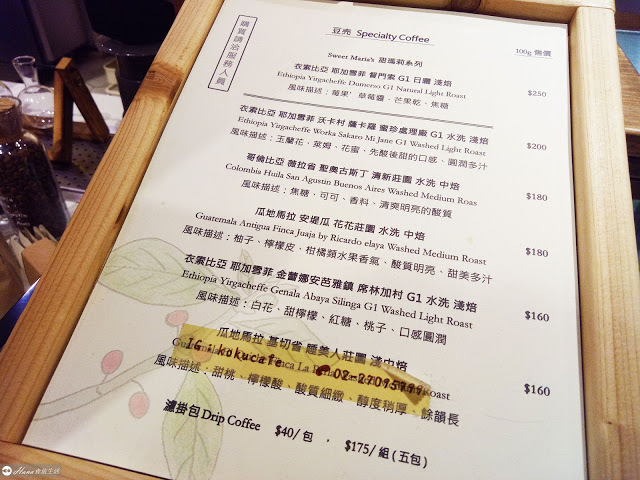 購買請洽服務人員
豆売 Specialty Coffee
100g 售價
Sweet Maria's 甜瑪莉系列
衣索比亞 耶加雪菲 督門索 G1 日曬 淺焙
Ethiopia Yirgacheffe Dumerso G1 Natural Light Roast $250
風味描述：莓果、草莓醬、芒果乾、焦糖
衣索比亞 耶加雪菲 沃卡村 薩卡羅 蜜珍處理廠 G1 水洗 淺焙
Ethiopia Yirgacheffe Worka Sakaro Mi Jane G1 Washed Light Roast $200
風味描述：玉蘭花、萊姆、花蜜、先酸後甜的口感、圓潤多汁
哥倫比亞 薇拉省 聖奧古斯丁 清新莊園 水洗 中焙
Colombia Huila San Agustin Buenos Aires Washed Medium Roas $180
風味描述：焦糖、可可、香料、清爽明亮的酸質
瓜地馬拉 安堤瓜 花花莊園 水洗 中焙
Guatemala Antigua Finca Juaja by Ricardo elaya Washed Medium Roast $180
風味描述：柚子、檸檬皮、柑橘類水果香氣、酸質明亮、甜美多汁
衣索比亞 耶加雪菲 金蕾娜安芭雅鎮 席林加村 G1 水洗 淺焙
Ethiopia Yirgacheffe Genala Abaya Silinga G1 Washed Light Roast $160
風味描述：白花、甜檸檬、紅糖、桃子、口感圓潤
瓜地馬拉 基切省 睡美人莊園 淺中焙
IG : kokucafe 02-27095999
Finca La Roast $160
風味描述：甜桃、檸檬酸、酸質細緻、醇度稍厚、餘韻長
濾掛包 Drip Coffee $40/包 、 $175/組(五包)